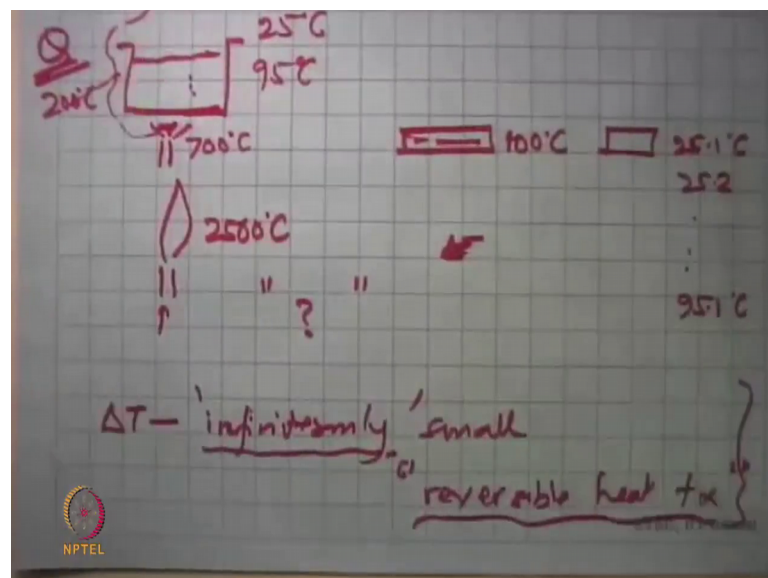 25°C
Q
95°C
200°C
700°C
100°C
25.1°C
25.2
2500°C
" "
?
95.1°C
ΔT — 'infinitesmly' small
"reversable heat tx"
NPTEL